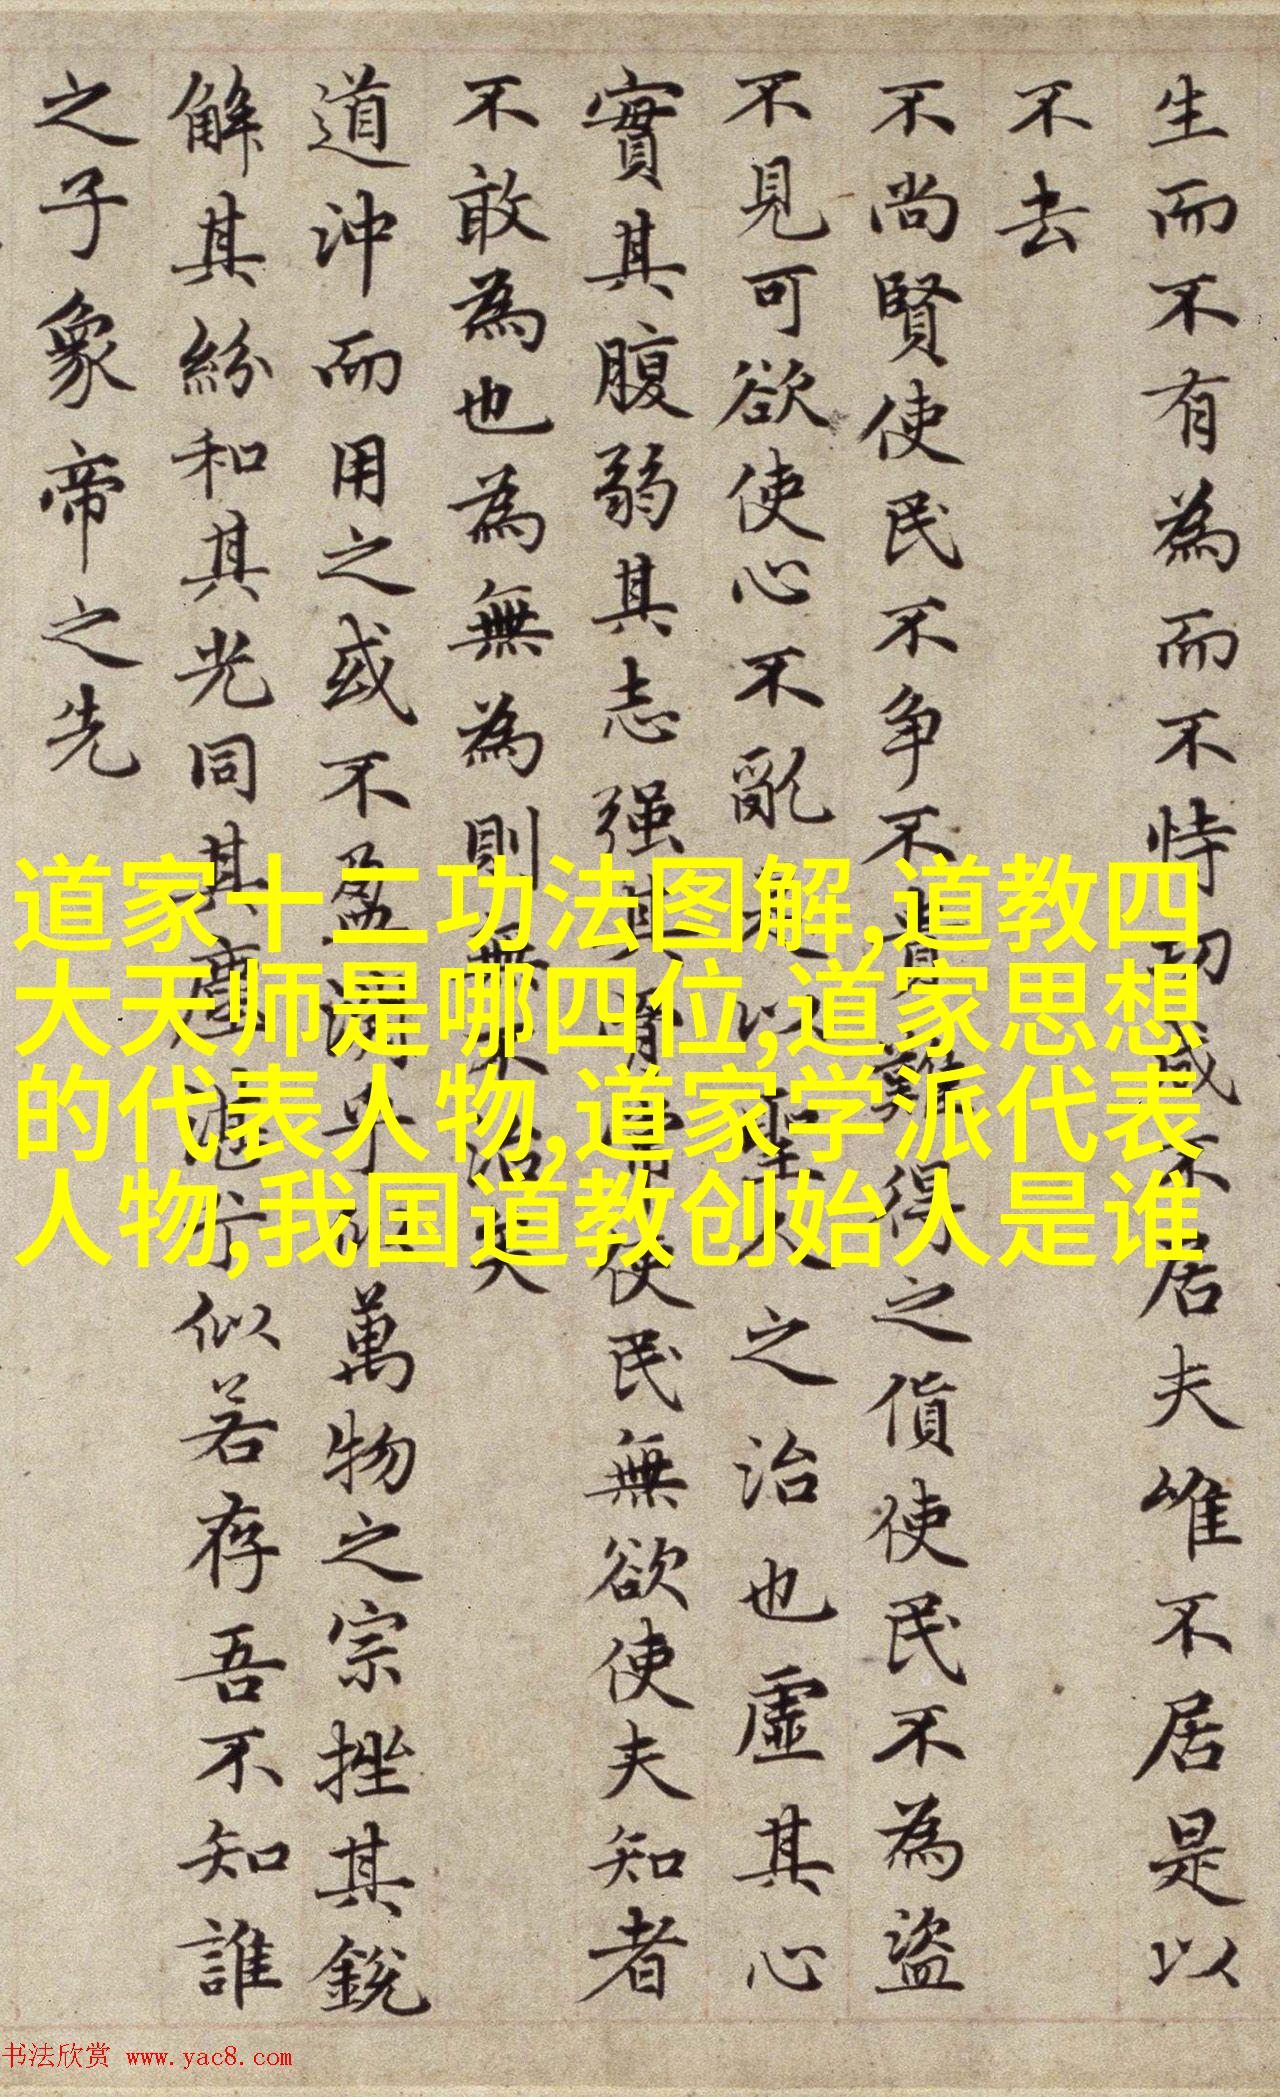 生而不有為而不恃功成不居夫唯不居是以
不去
不尚賢使民不争不貴難得之貨使民不為盜
不見可欲使心不亂是以聖人之治也虛其心
實其腹弱其志强其骨常使民無欲使夫知者
不敢為也為無為則無不治矣
道沖而用之或不盈淵乎似萬物之宗挫其銳
解其紛和其光同其塵湛兮似若存吾不知誰
之子象帝之先
道家十二功法图解,道教四
大天师是哪四位,道家思想
的代表人物,道家学派代表
人物,我国道教创始人是谁
书法欣赏 www.yac8.com